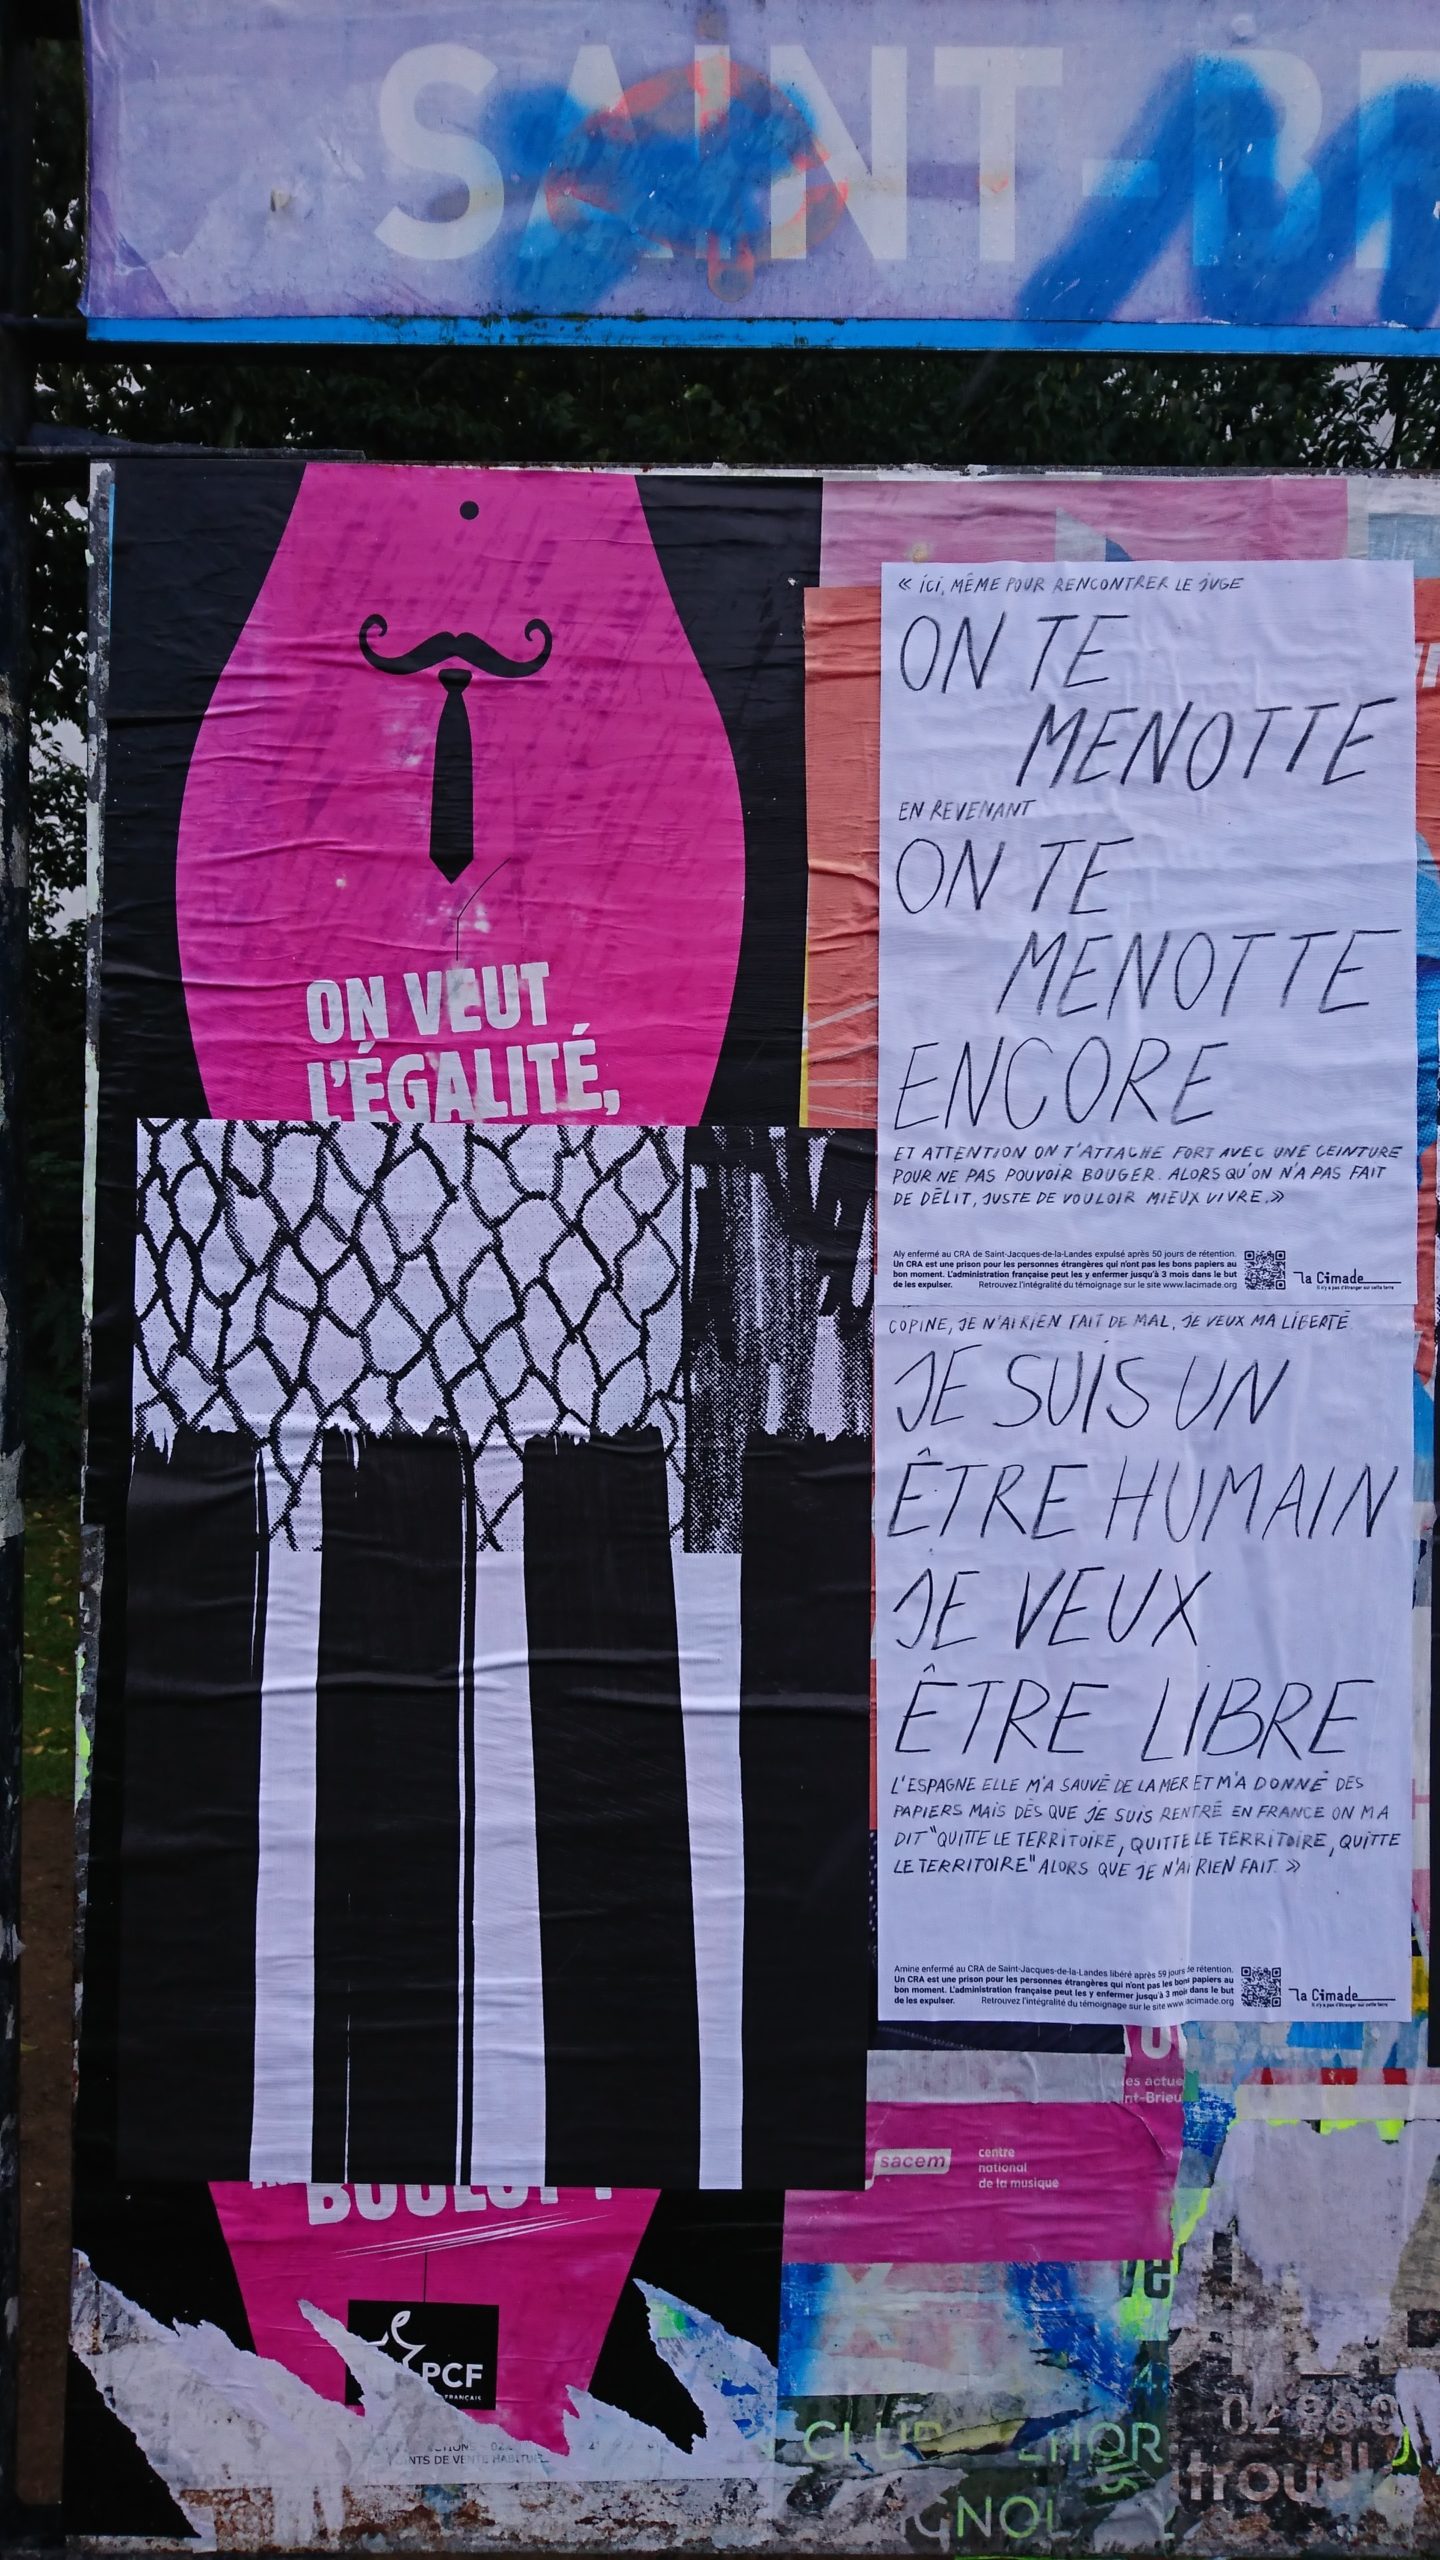 SAINT-BR
ON VEUT
L'ÉGALITÉ,
PCF
FRANÇAIS
« ICI, MÊME POUR RENCONTRER LE JUGE
ON TE
MENOTTE
EN REVENANT
ON TE
MENOTTE
ENCORE
ET ATTENTION ON T'ATTACHE FORT AVEC UNE CEINTURE
POUR NE PAS POUVOIR BOUGER. ALORS QU'ON N'A PAS FAIT
DE DÉLIT, JUSTE DE VOULOIR MIEUX VIVRE.»
Aly enfermé au CRA de Saint-Jacques-de-la-Landes expulsé après 50 jours de rétention.
Un CRA est une prison pour les personnes étrangères qui n'ont pas les bons papiers au
bon moment. L'administration française peut les y enfermer jusqu'à 3 mois dans le but
de les expulser. Retrouvez l'intégralité du témoignage sur le site www.lacimade.org
la Cimade
Il n'y a pas d'étranger sur cette terre
COPINE, JE N'AI RIEN FAIT DE MAL, JE VEUX MA LIBERTÉ
JE SUIS UN
ÊTRE HUMAIN
JE VEUX
ÊTRE LIBRE
L'ESPAGNE ELLE M'A SAUVÉ DE LA MER ET M'A DONNÉ DES
PAPIERS MAIS DÈS QUE JE SUIS RENTRÉ EN FRANCE ON M A
DIT "QUITTE LE TERRITOIRE, QUITTE LE TERRITOIRE, QUITTE
LE TERRITOIRE" ALORS QUE JE N'AI RIEN FAIT. »
Amine enfermé au CRA de Saint-Jacques-de-la-Landes libéré après 59 jours de rétention.
Un CRA est une prison pour les personnes étrangères qui n'ont pas les bons papiers au
bon moment. L'administration française peut les y enfermer jusqu'à 3 mois dans le but
de les expulser. Retrouvez l'intégralité du témoignage sur le site www.lacimade.org
la Cimade
Il n'y a pas d'étranger sur cette terre
es actue
nt-Brieu
sacem
centre
national
de la musique
CLUB
GNOL